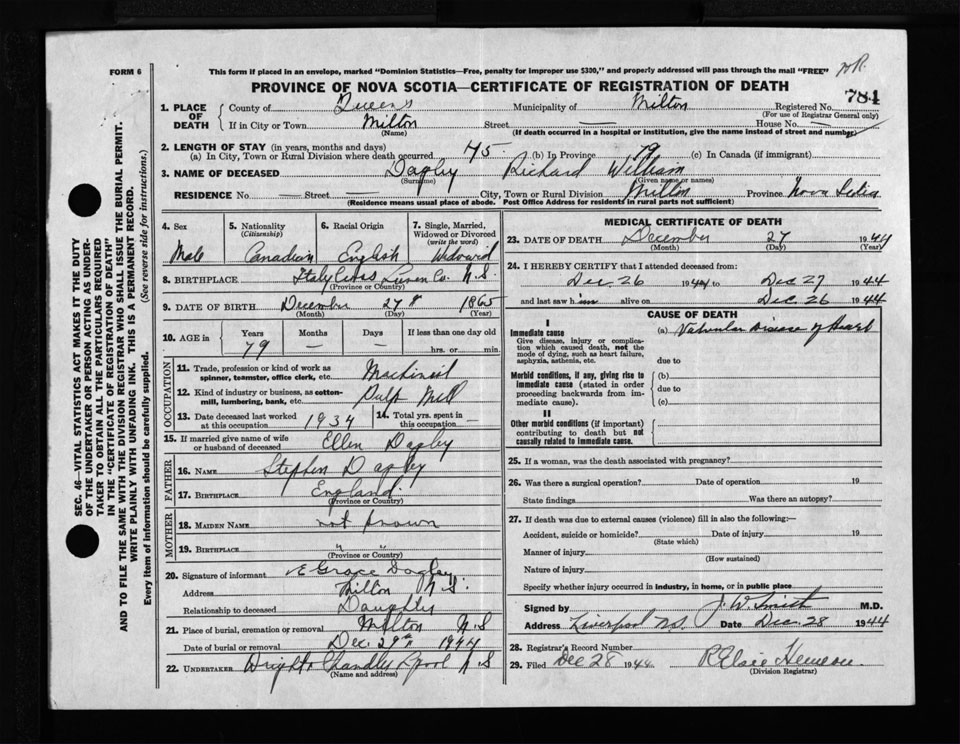 FORM 6
This form if placed in an envelope, marked "Dominion Statistics—Free, penalty for improper use $300," and properly addressed will pass through the mail "FREE"
PROVINCE OF NOVA SCOTIA—CERTIFICATE OF REGISTRATION OF DEATH
784
SEC. 46—VITAL STATISTICS ACT MAKES IT THE DUTY
OF THE UNDERTAKER OR PERSON ACTING AS UNDER-
TAKER TO OBTAIN ALL THE PARTICULARS REQUIRED
IN THE "CERTIFICATE OF REGISTRATION OF DEATH"
AND TO FILE THE SAME WITH THE DIVISION REGISTRAR WHO SHALL ISSUE THE BURIAL PERMIT.
WRITE PLAINLY WITH UNFADING INK. THIS IS A PERMANENT RECORD.
Every item of information should be carefully supplied. (See reverse side for instructions.)
1. PLACE OF DEATH
County of Queens Municipality of Milton Registered No.
(For use of Registrar General only)
If in City or Town Milton Street — House No. —
(Name) (If death occurred in a hospital or institution, give the name instead of street and number)
2. LENGTH OF STAY (in years, months and days)
(a) In City, Town or Rural Division where death occurred 45 (b) In Province 79 (c) In Canada (if immigrant)
3. NAME OF DECEASED Dagley Richard William
(Surname) (Given name or names)
RESIDENCE No. — Street — City, Town or Rural Division Milton Province Nova Scotia
(Residence means usual place of abode. Post Office Address for residents in rural parts not sufficient)
4. Sex
Male
5. Nationality
(Citizenship)
Canadian
6. Racial Origin
English
7. Single, Married,
Widowed or Divorced
(write the word)
8. BIRTHPLACE Queen Co. N.S.
(Province or Country)
9. DATE OF BIRTH December 27 1865
(Month) (Day) (Year)
10. AGE in
Years Months Days If less than one day old
79 — — hrs. or min.
OCCUPATION
11. Trade, profession or kind of work as
spinner, teamster, office clerk, etc. Machinist
12. Kind of industry or business, as cotton-
mill, lumbering, bank, etc. Pulp Mill
13. Date deceased last worked
at this occupation 1934
14. Total yrs. spent in
this occupation —
15. If married give name of wife
or husband of deceased Ellen Dagley
FATHER
16. NAME Stephen Dagley
17. BIRTHPLACE England
(Province or Country)
MOTHER
18. MAIDEN NAME not known
19. BIRTHPLACE " "
(Province or Country)
20. Signature of informant E Grace Dagley
Address Milton N.S.
Relationship to deceased Daughter
21. Place of burial, cremation or removal Milton N.S
Date of burial or removal Dec. 29th 1944
22. UNDERTAKER N S
(Name and address)
MEDICAL CERTIFICATE OF DEATH
23. DATE OF DEATH December 27 1944
(Month) (Day) (Year)
24. I HEREBY CERTIFY that I attended deceased from:
Dec. 26 1944 to Dec 27 1944
and last saw him alive on Dec. 26 1944
CAUSE OF DEATH
I
Immediate cause
Give disease, injury or complica-
tion which caused death, not the
mode of dying, such as heart failure,
asphyxia, asthenia, etc.
(a) Valvular Disease of Heart
due to
Morbid conditions, if any, giving rise to
immediate cause (stated in order
proceeding backwards from im-
mediate cause).
(b)
due to
(c)
II
Other morbid conditions (if important)
contributing to death but not
causally related to immediate cause.
25. If a woman, was the death associated with pregnancy?
26. Was there a surgical operation? Date of operation 19
State findings Was there an autopsy?
27. If death was due to external causes (violence) fill in also the following:—
Accident, suicide or homicide? Date of injury 19
(State which)
Manner of injury
(How sustained)
Nature of injury
Specify whether injury occurred in industry, in home, or in public place
Signed by J. W. Smith M.D.
Address Liverpool N.S. Date Dec. 28 1944
28. Registrar's Record Number
29. Filed Dec 28 1944
(Division Registrar)